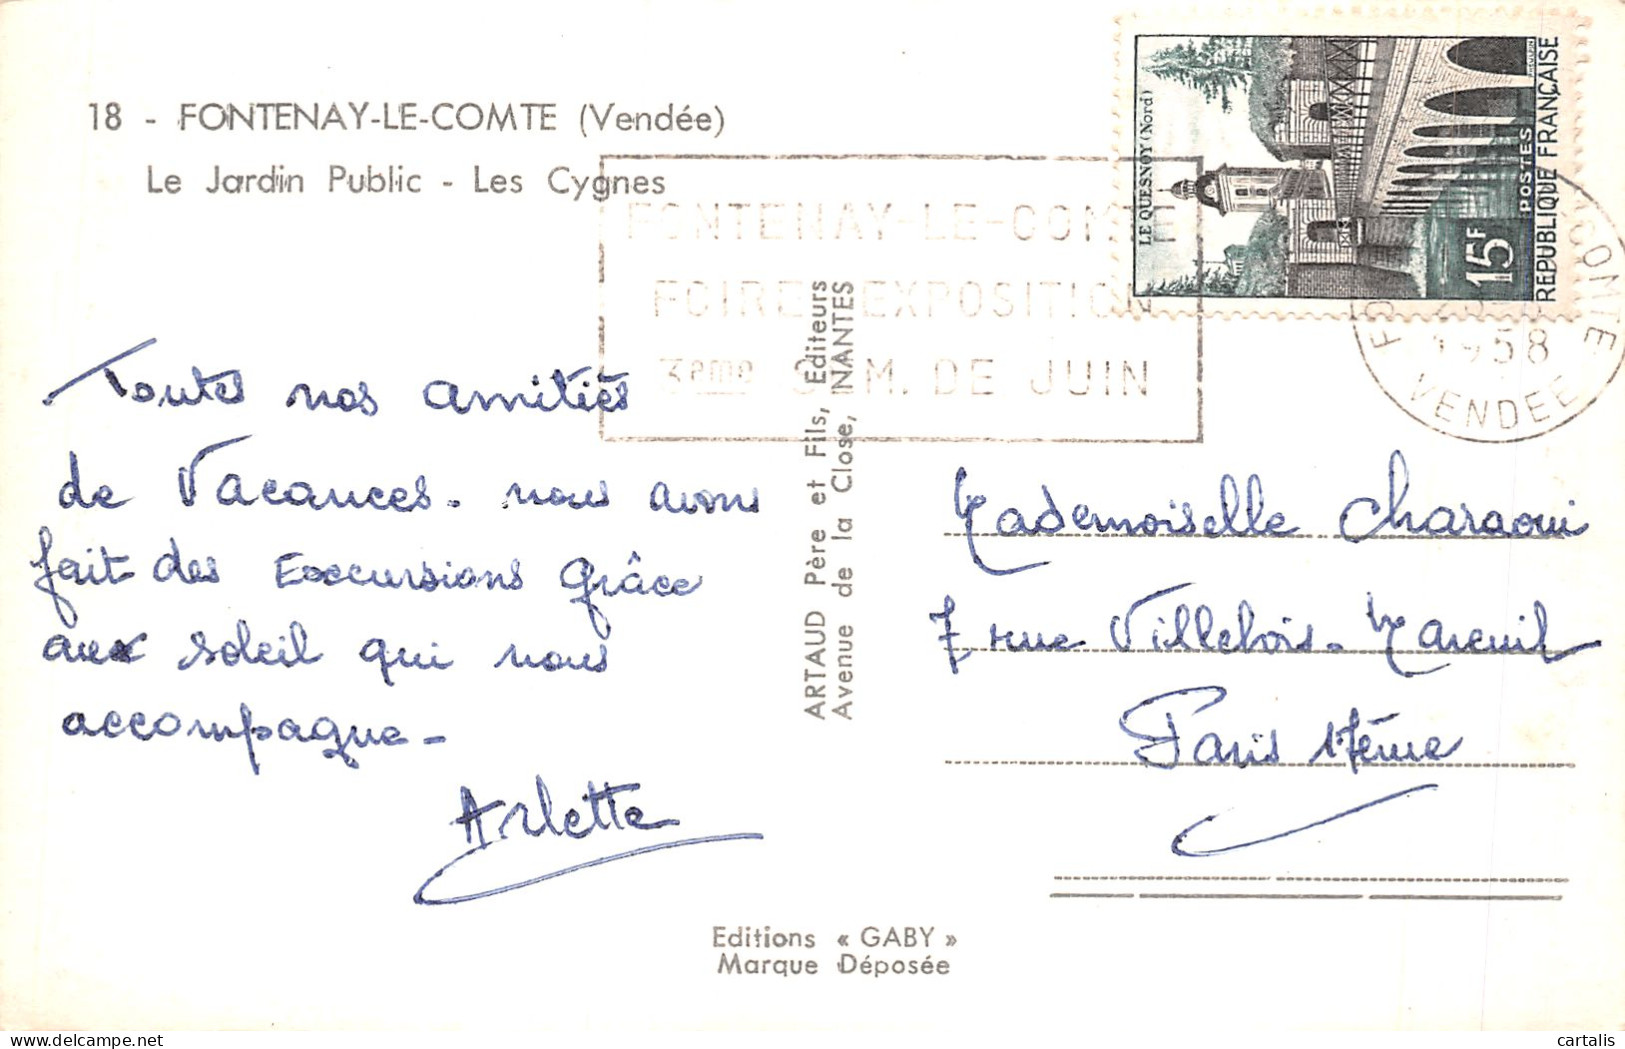 18 - FONTENAY-LE-COMTE (Vendée)
Le Jardin Public - Les Cygnes
FONTENAY-LE-COMTE
FOIRE EXPOSITION
3eme M. DE JUIN
LE QUESNOY (Nord)
POSTES
15F
REPUBLIQUE FRANÇAISE
1958
VENDEE
Toutes nos amitiés
de Vacances. nous avons
fait des Excursions grâce
aux soleil qui nous
accompagne -
Arlette
ARTAUD Père et Fils, Editeurs
Avenue de la Close, NANTES
Mademoiselle Charaoui
7 rue Villebois. Mareuil
Paris 17ème
Editions « GABY »
Marque Déposée
cartalis